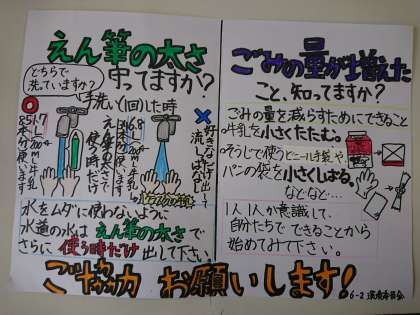 えん筆の太さ
守ってますか？
どちらで
洗っていますか？
手洗い(1回)した時
1.7L
200mL牛乳
8.5本分使います
えん筆の太さで
使う時だけ
6.8L
200mL牛乳
34本分使います
好きなだけ出して
流しっぱなし
水をムダに使わないように
水道の水はえん筆の太さで
さらに使う時だけ出して下さい。
ごみの量が増えた
こと、知ってますか？
ごみの量を減らすためにできること
・牛乳を小さくたたむ。
・そうじで使うビニール手袋や、
パンの袋を小さくしばる。
などなど…
1人1人が意識して、
自分たちでできることから
始めてみて下さい。
ご協力お願いします！
6-2 環境委員会